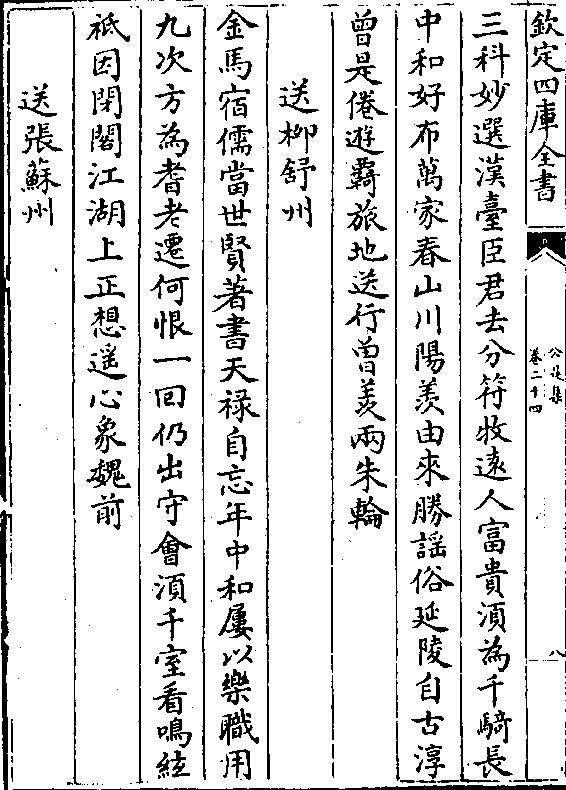 欽定四庫全書
公是集
卷二十四
八
三科妙選漢臺臣君去分符牧遠人富貴須為千騎長
中和好布萬家春山川陽羨由來勝謡俗延陵自古淳
曾是倦遊羇旅地送行曾羨兩朱輪
送柳舒州
金馬宿儒當世賢著書天禄自忘年中和屢以樂職用
九次方為耆老遷何恨一回仍出守會須千室看鳴絃
祗因閉閤江湖上正想遥心象魏前
送張蘇州